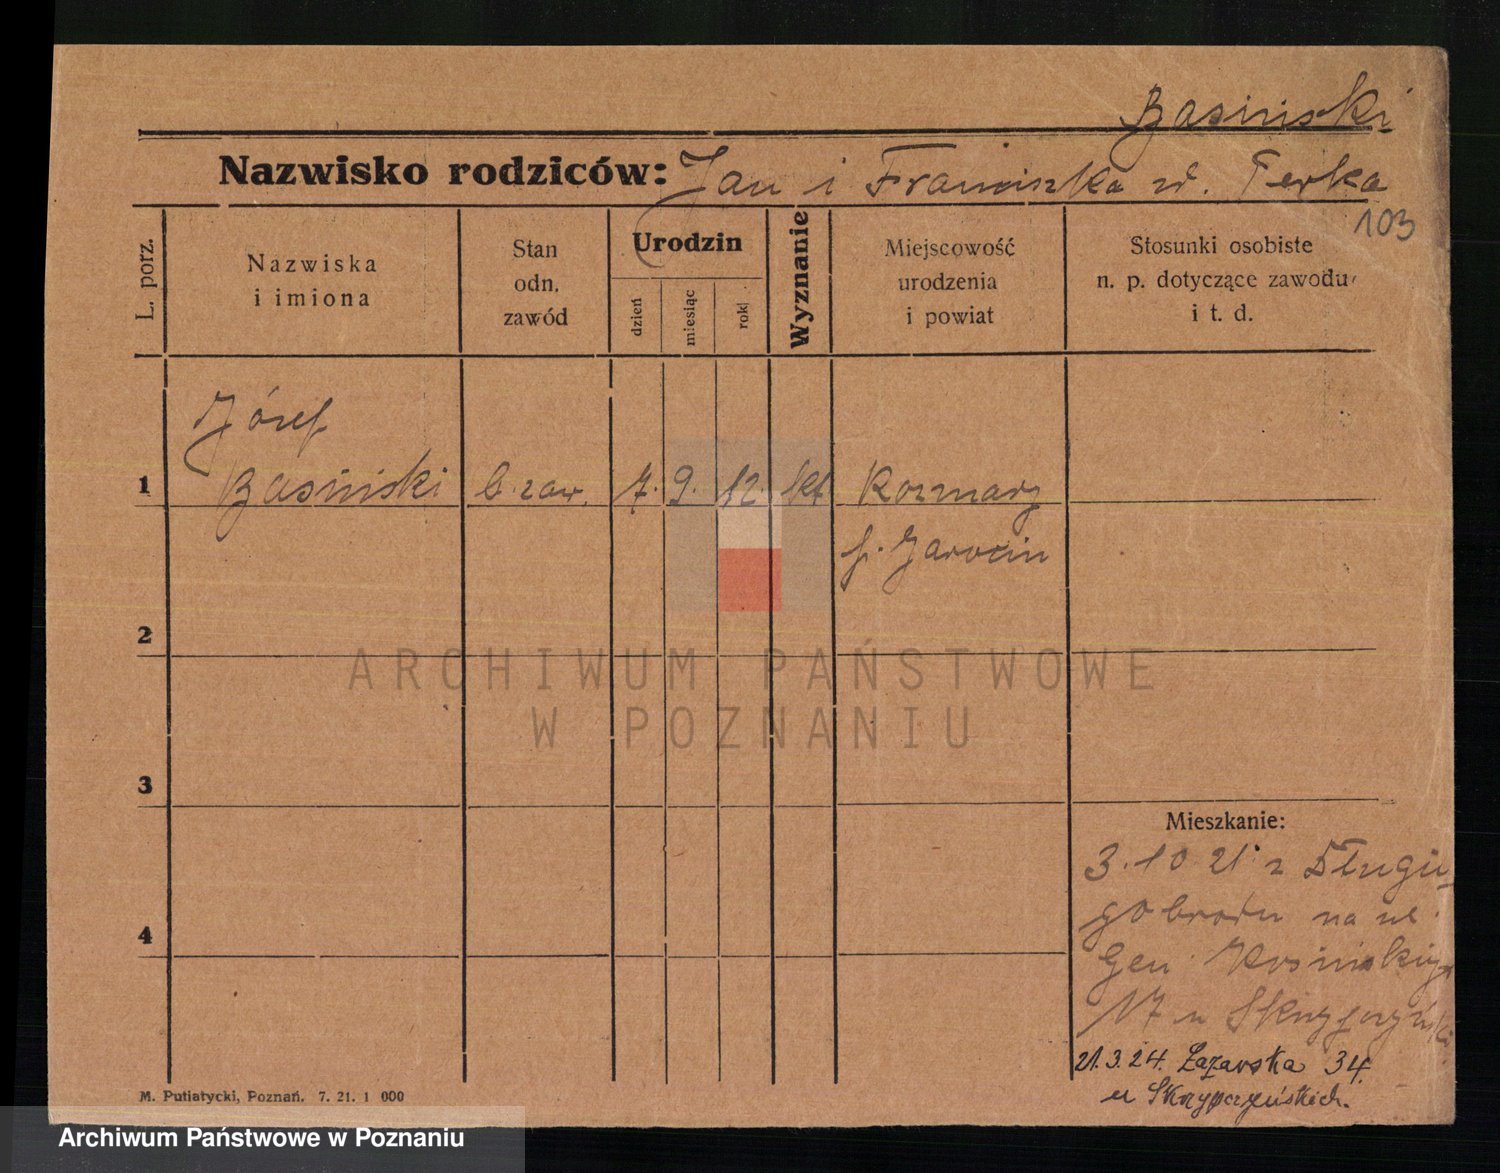 Basiński
Nazwisko rodziców: Jan i Franciszka zd. Ferka
103
L. porz.
Nazwiska
i imiona
Stan
odn.
zawód
Urodzin
dzień
miesiąc
rok
Wyznanie
Miejscowość
urodzenia
i powiat
Stosunki osobiste
n. p. dotyczące zawodu
i t. d.
Józef
1 Basiński b. zaw. 7. 9. 12. kt Rozmarz
p. Jarocin
2
3
4
Mieszkanie:
3.10 21. z Długi
gobrodu na ul.
Gen. Kosińskiego
17 u Skrzypczyński
21.3.24. Łazarska 34.
u Skrzypczyńskich.
M. Putiatycki, Poznań. 7. 21. 1 000
ARCHIWUM PAŃSTWOWE
W POZNANIU
Archiwum Państwowe w Poznaniu